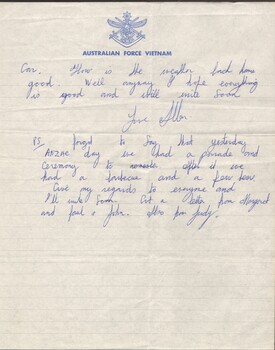 AUSTRALIAN FORCE VIETNAM
Con. How is the weather back home
good. Well anyway I hope everything
is good and will write soon
Love
P.S. forgot to say that yesterday
ANZAC day we had a parade and
Ceremony to after it we
had a barbecue and a few beers.
Give my regards to everyone and
I'll write soon. Got a letter from Margaret
and Paul & John. Also from Judy.